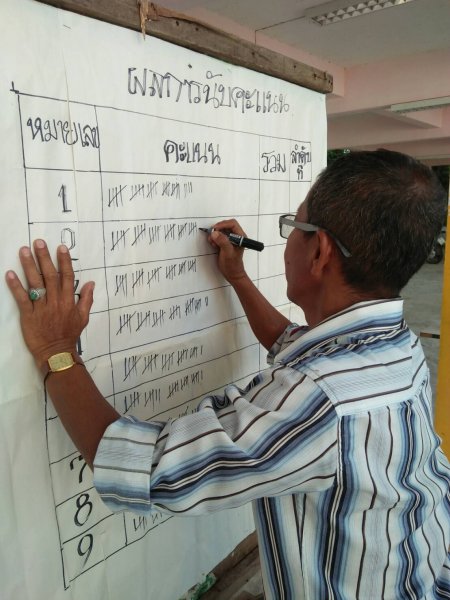 ผลการนับคะแนน
หมายเลข คะแนน รวม ลำดับที่
1
2
7
8
9